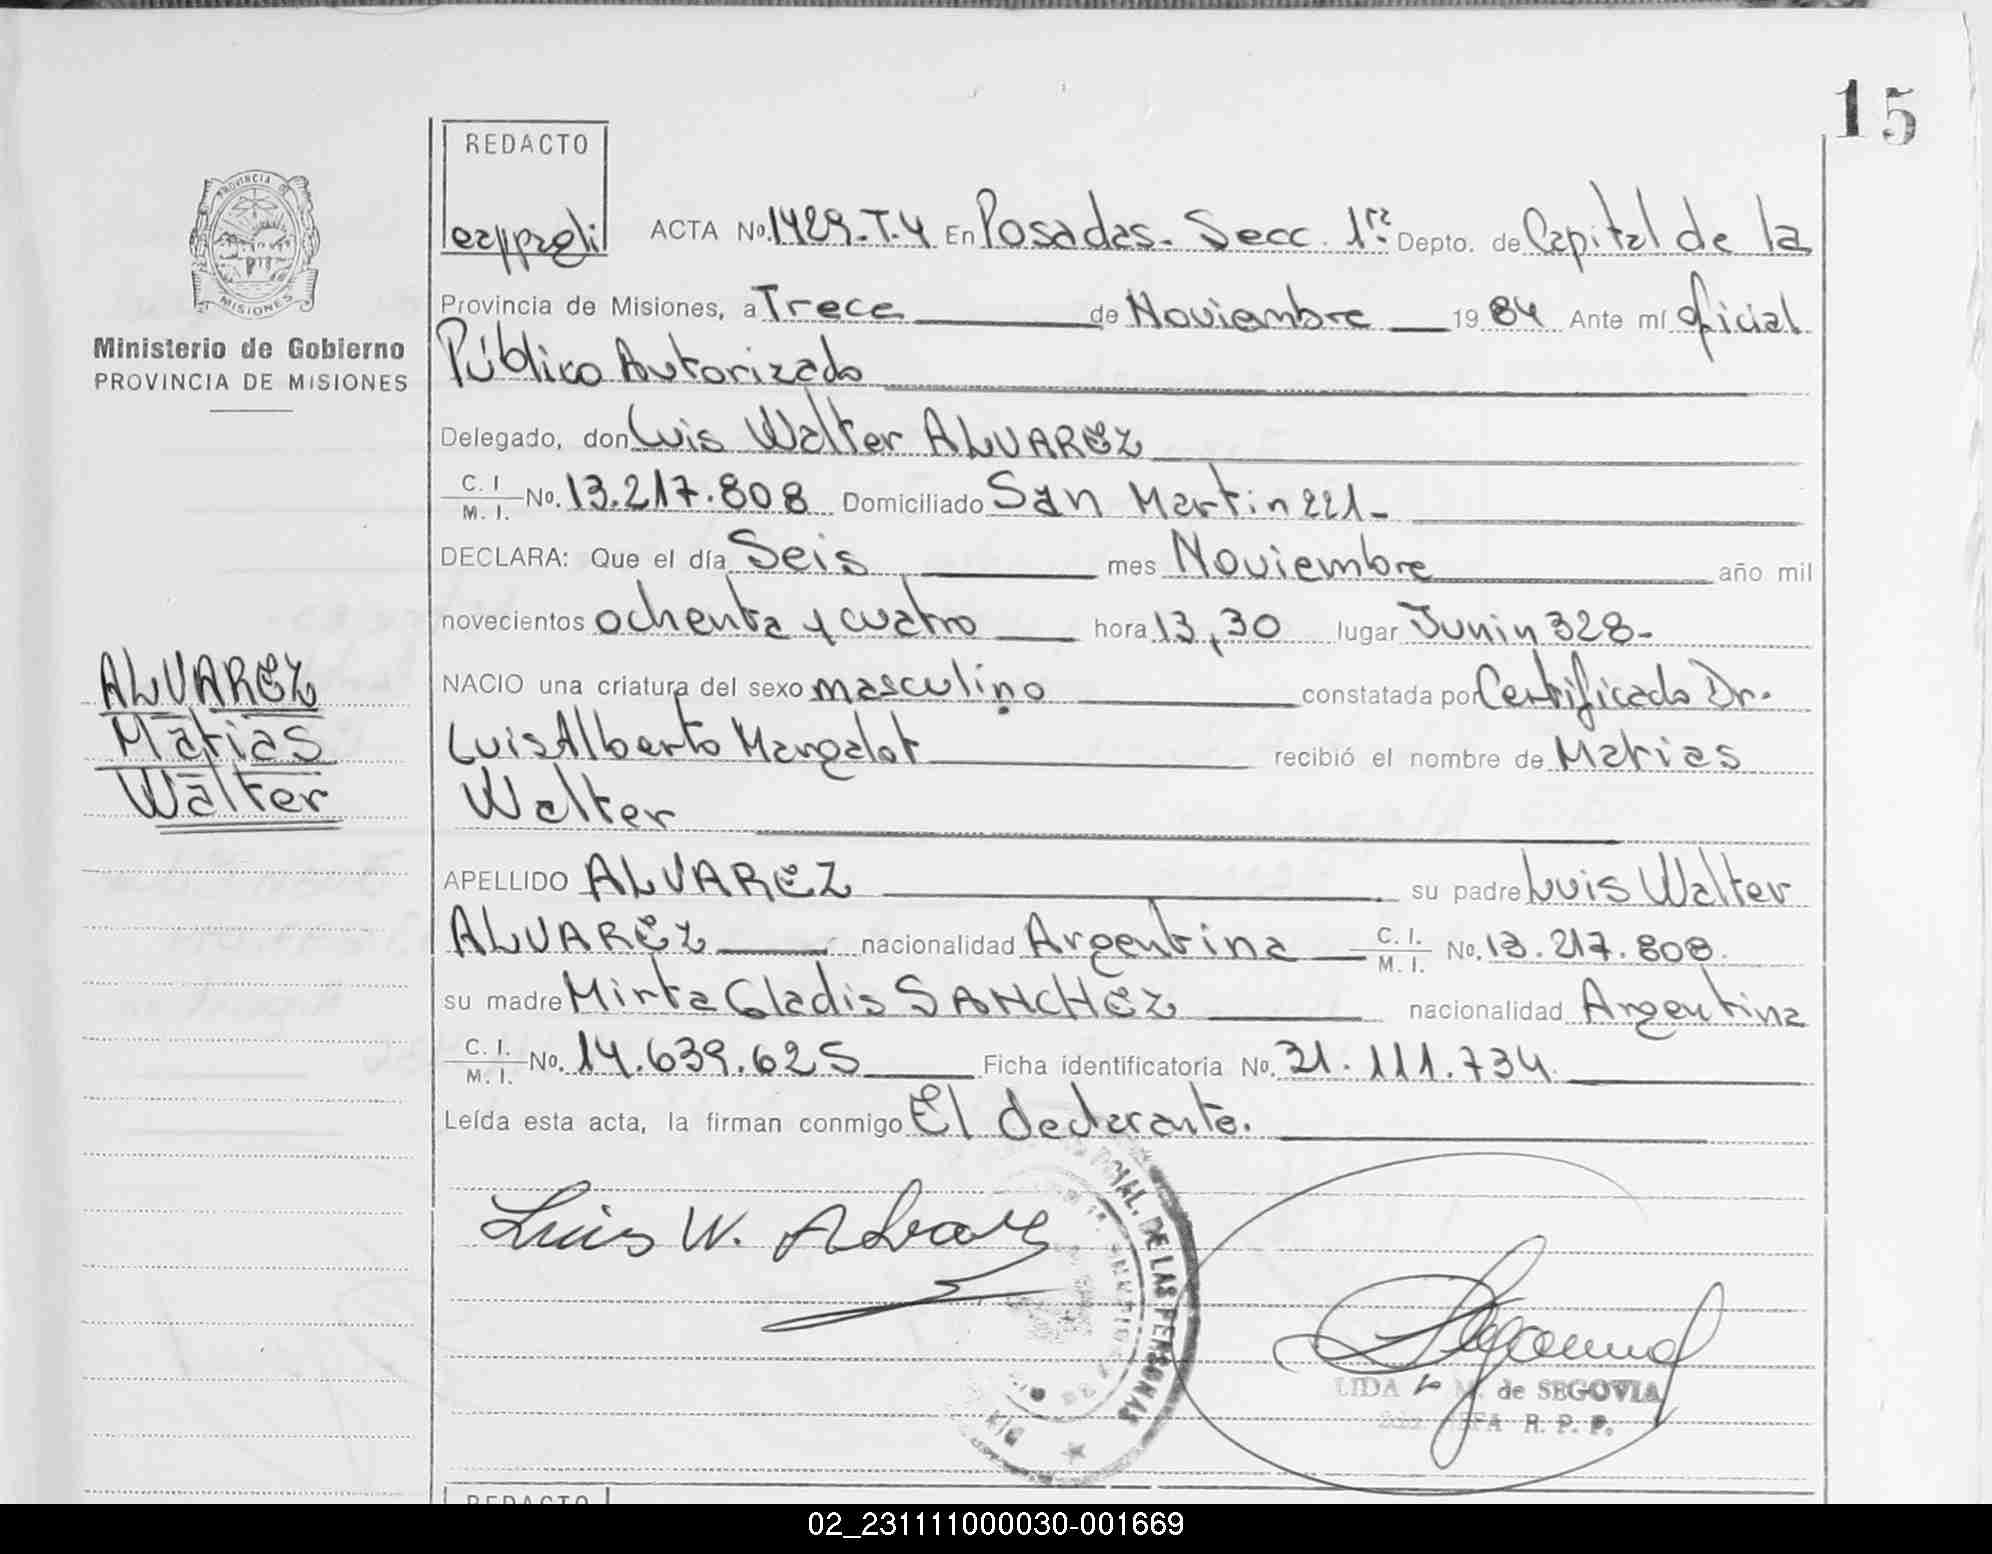 15
REDACTO
PROVINCIA DE
MISIONES
Ministerio de Gobierno
PROVINCIA DE MISIONES
ACTA No. 1429.T.4 En Posadas. Secc. 1ra. Depto. de Capital de la
Provincia de Misiones, a Trece de Noviembre 1984 Ante mí Oficial
Público Autorizado
Delegado, don Luis Walter ALVAREZ
C. I. M. I. No. 13.217.808 Domiciliado San Martin 221-
DECLARA: Que el día Seis mes Noviembre año mil
novecientos ochenta y cuatro hora 13,30 lugar Junin 328-
ALVAREZ
Matias
Walter
NACIO una criatura del sexo masculino constatada por Certificado Dr.
Luis Alberto Margalot recibió el nombre de Matias
Walter
APELLIDO ALVAREZ su padre Luis Walter
ALVAREZ nacionalidad Argentina C. I. M. I. No. 13.217.808.
su madre Mirta Gladis SANCHEZ nacionalidad Argentina
C. I. M. I. No. 14.639.625 Ficha identificatoria No. 31.111.734
Leída esta acta, la firman conmigo El declarante.
Luis W. Alvarez
DE LAS PERSONAS
de SEGOVIA
R. P. P.
REDACTO
02_231111000030-001669